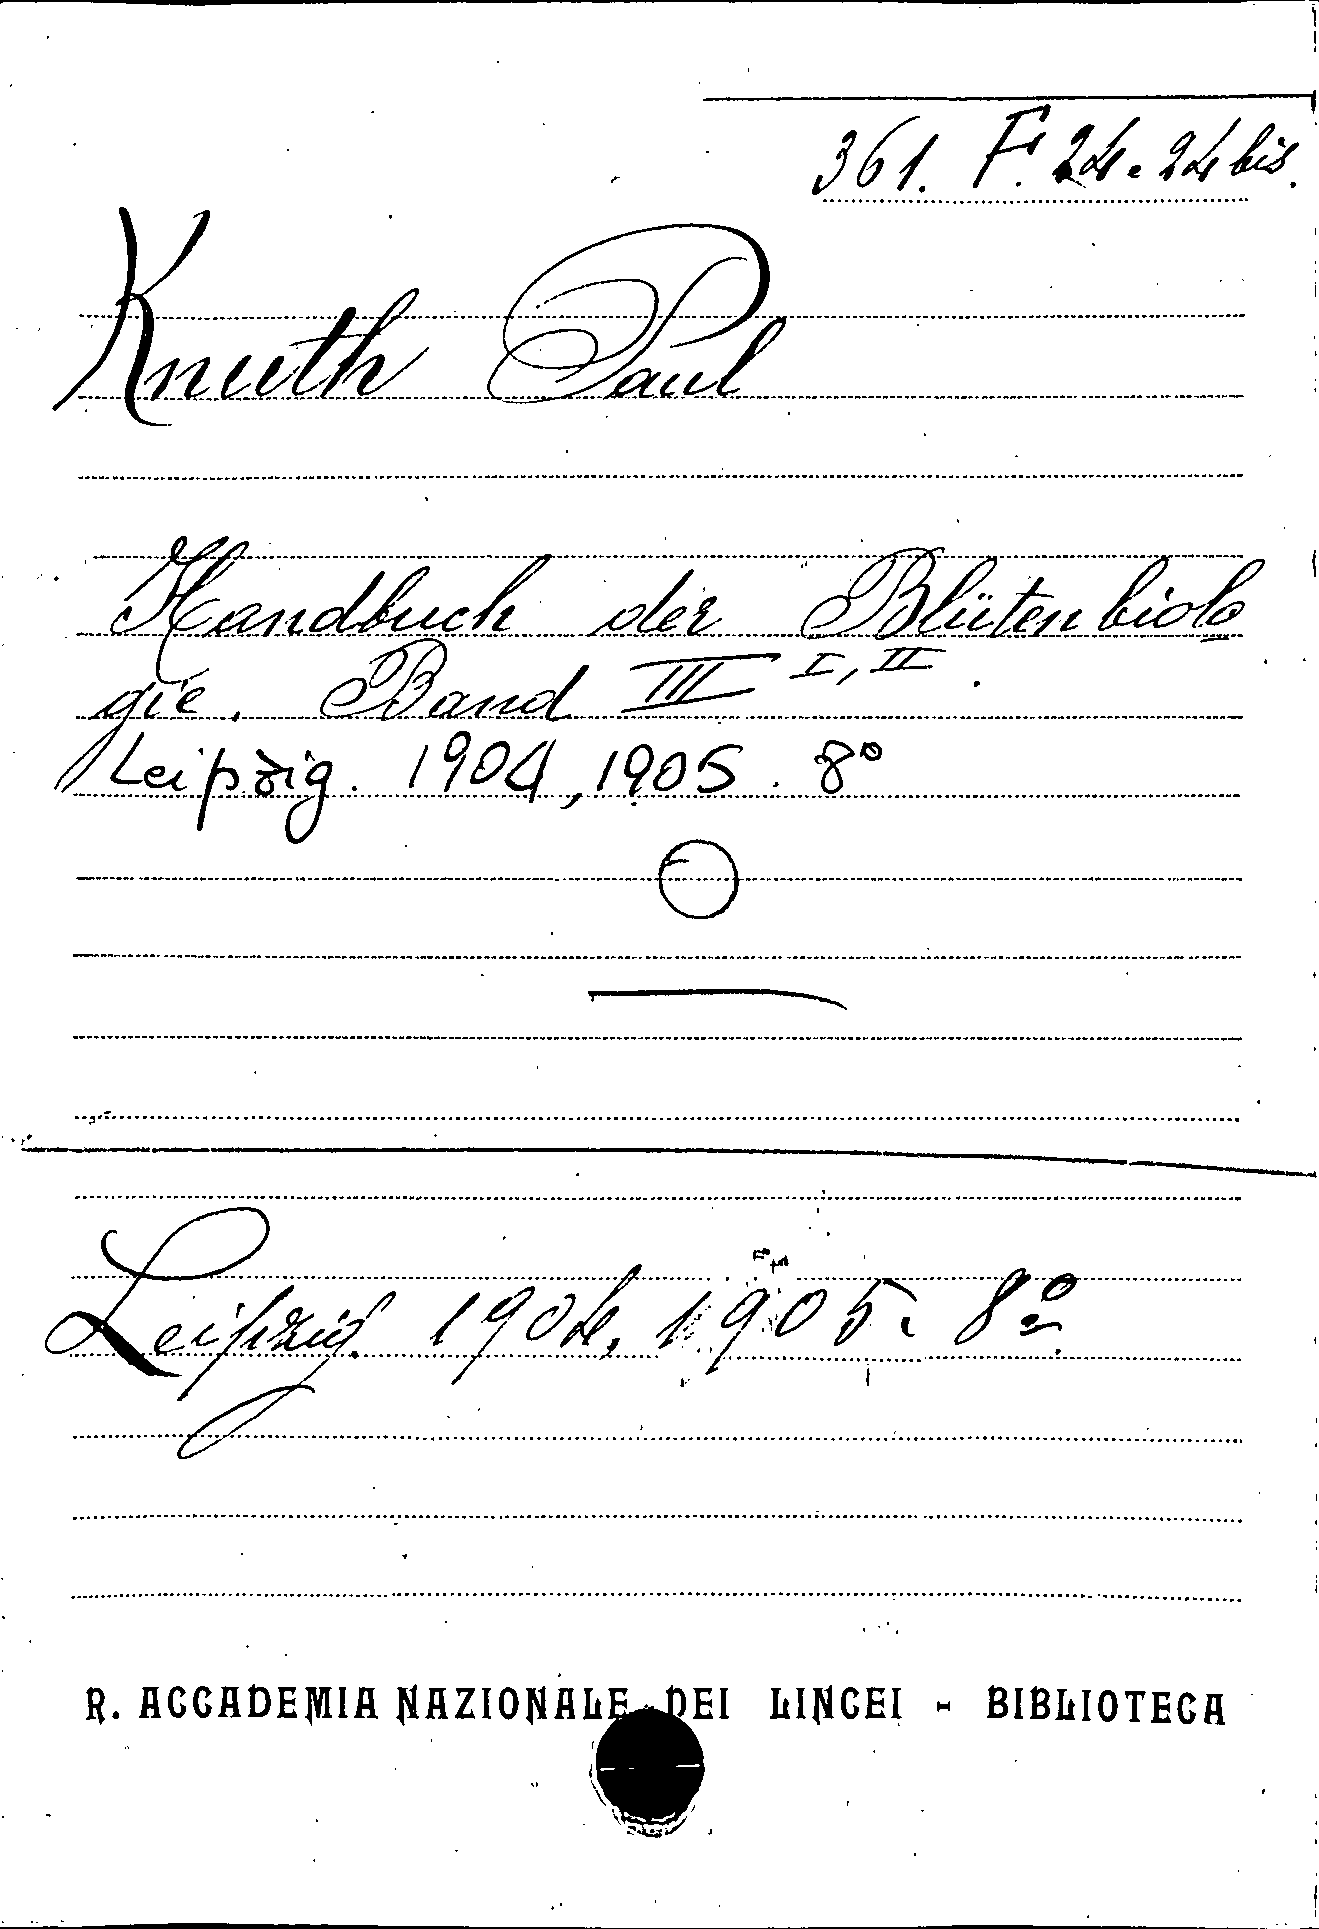 361. F. 24. 24 bis.
Knuth Paul
Handbuch der Blütenbiolo
gie. Band III I, II.
Leipzig. 1904, 1905. 8º
Leipzig. 1904. 1905. 8º
R. ACCADEMIA NAZIONALE DEI LINCEI - BIBLIOTECA